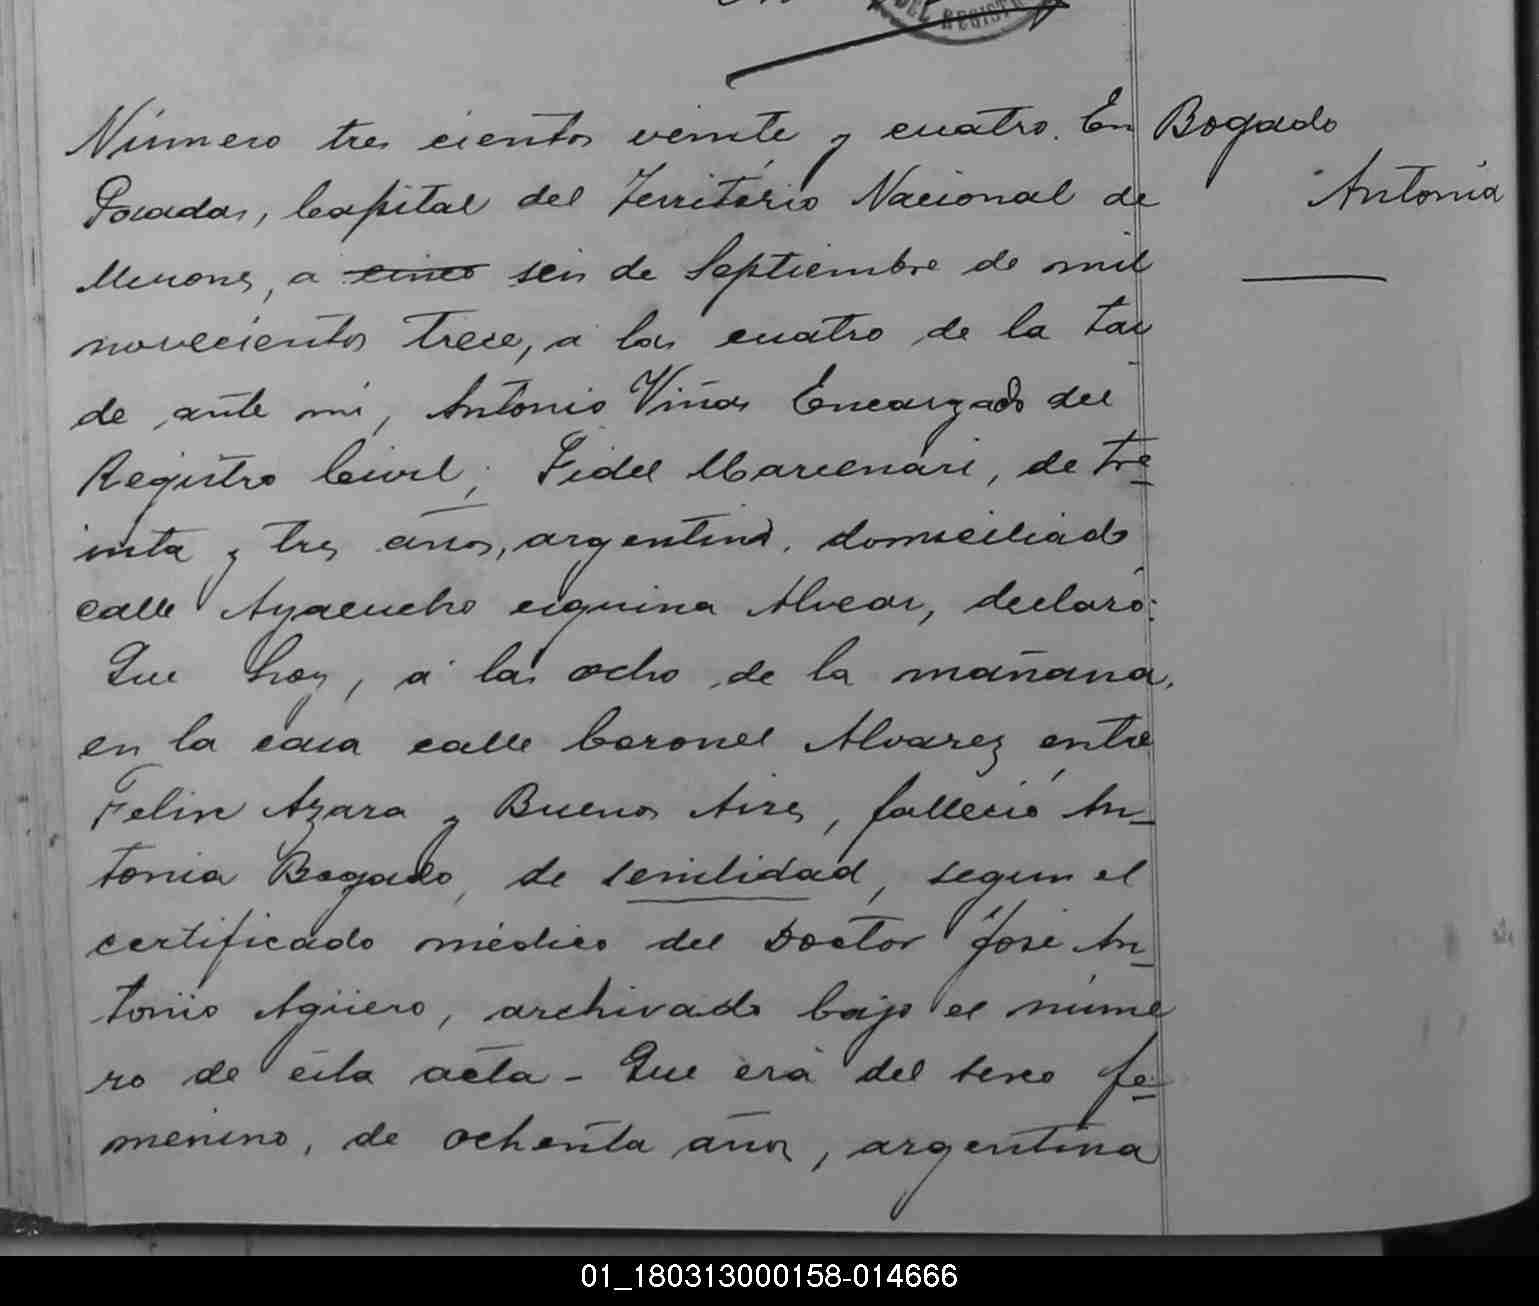 DEL REGISTR
Número tres cientos veinte y cuatro. En
Posadas, Capital del Territorio Nacional de
Misiones, a cinco seis de Septiembre de mil
novecientos trece, a las cuatro de la tar
de ante mi, Antonio Viñas Encargado del
Registro Civil; Fidel Marcenari, de tre-
inta y tres años, argentino, domiciliado
calle Ayacucho esquina Alvear, declaró:
Que hoy, á las ocho de la mañana,
en la casa calle Coronel Alvarez entre
Felix Azara y Buenos Aires, falleció An-
tonia Bogado, de senilidad, segun el
certificado médico del Doctor José An-
tonio Agüero, archivado bajo el núme
ro de esta acta - Que era del sexo fe-
menino, de ochenta años, argentina
Bogado
Antonia
01_180313000158-014666